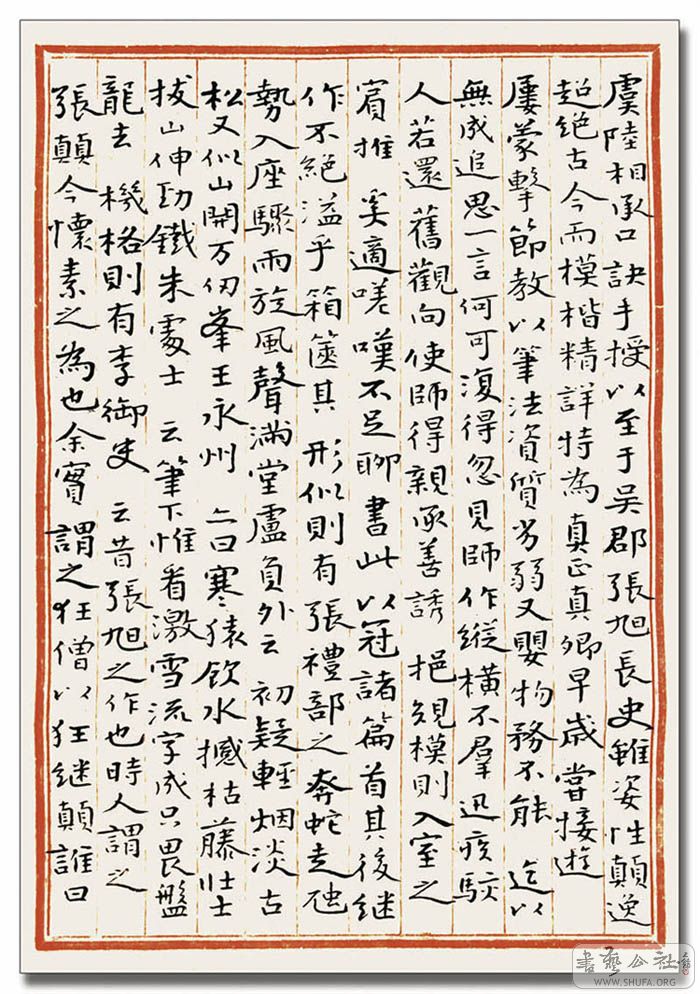 虞陸相承口訣手授以至于吳郡張旭長史雖姿性顛逸
超絕古今而模楷精詳特為真正真卿早歲嘗接遊
屢蒙擊節教以筆法資質劣弱又嬰物務不能迄以
無成追思一言何可復得忽見師作縱橫不羣迅疾駭
人若還舊觀向使師得親承善誘挹規模則入室之
賓推奚適嗟嘆不足聊書此以冠諸篇首其後継
作不絕溢乎箱篋其形似則有張禮部之奔蛇走虺
勢入座驟雨旋風聲滿堂盧員外云初疑輕烟淡古
松又似山開万仞峯王永州曰寒猿飲水撼枯藤壯士
拔山伸勁鐵朱處士云筆下惟看激雪流字成只畏盤
龍去機格則有李御史云昔張旭之作也時人謂之
張顛今懷素之為也余實謂之狂僧以狂継顛誰曰
書藝公社
WWW.SHUFA.ORG